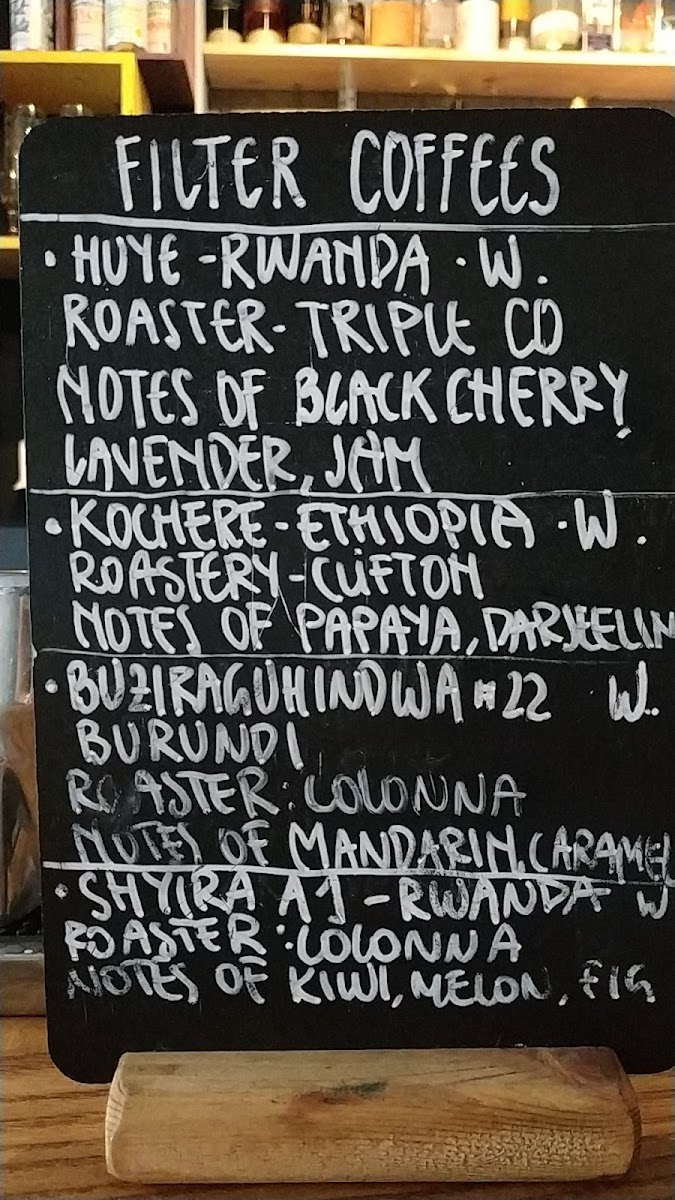 FILTER COFFEES
• HUYE - RWANDA • W.
ROASTER - TRIPLE CO
NOTES OF BLACK CHERRY,
LAVENDER, JAM
• KOCHERE - ETHIOPIA • W.
ROASTERY - CLIFTON
NOTES OF PAPAYA, DARJEELIN
• BUZIRAGUHINDWA #22 W..
BURUNDI
ROASTER: COLONNA
NOTES OF MANDARIN, CARAMEL
• SHYIRA A1 - RWANDA W
ROASTER: COLONNA
NOTES OF KIWI, MELON, FIG